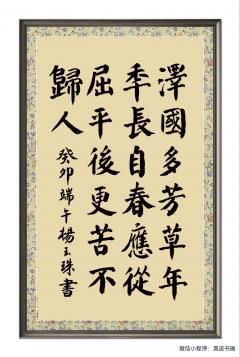 澤國多芳草年
秊長自春應從
屈平後更苦不
歸人
癸卯端午楊玉珠書
微信小程序：真迹书画